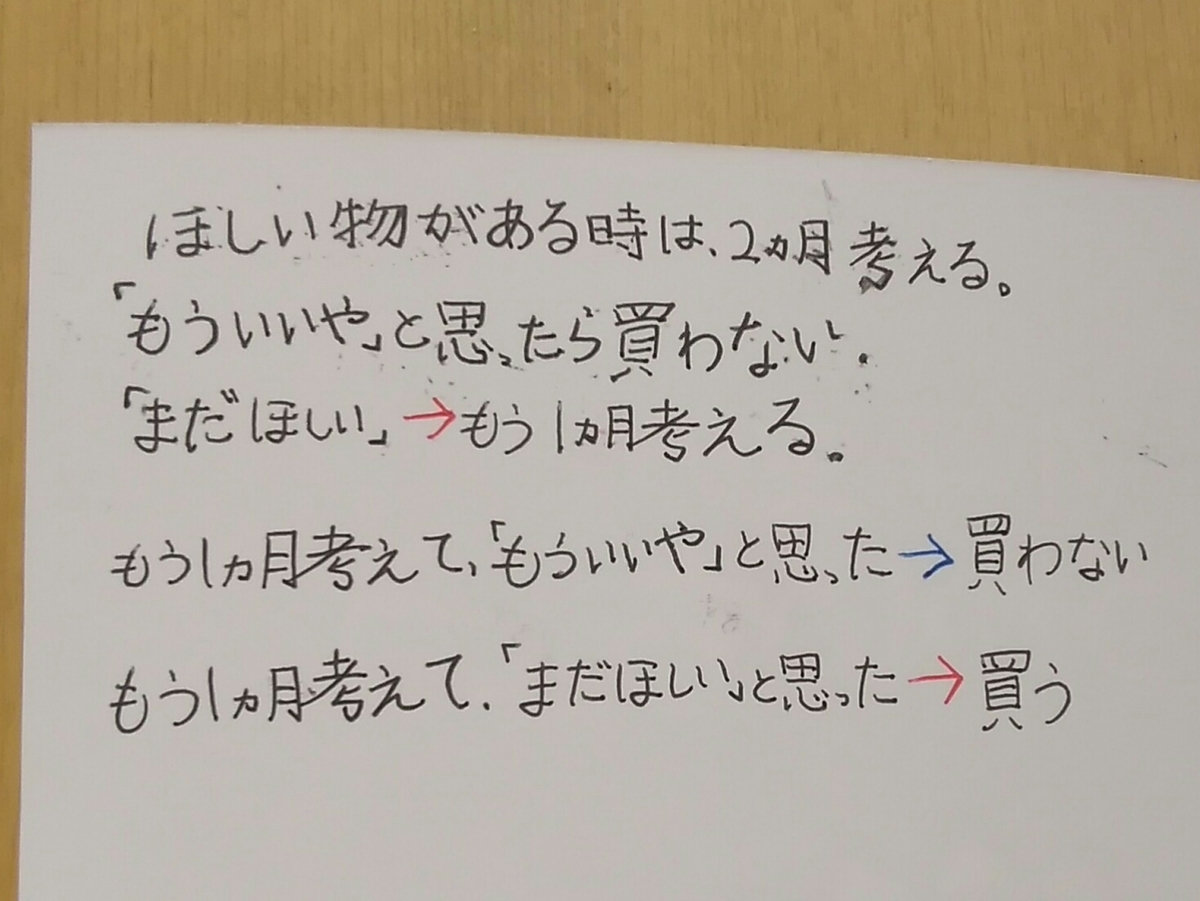 ほしい物がある時は、2ヵ月考える。
「もういいや」と思ったら買わない。
「まだほしい」→もう1ヵ月考える。
もう1ヵ月考えて、「もういいや」と思った→買わない
もう1ヵ月考えて、「まだほしい」と思った→買う